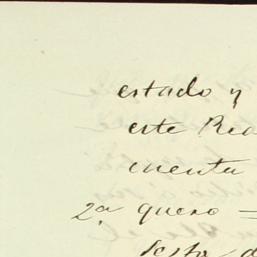 estado y
este Rea
cuenta
2a quero =